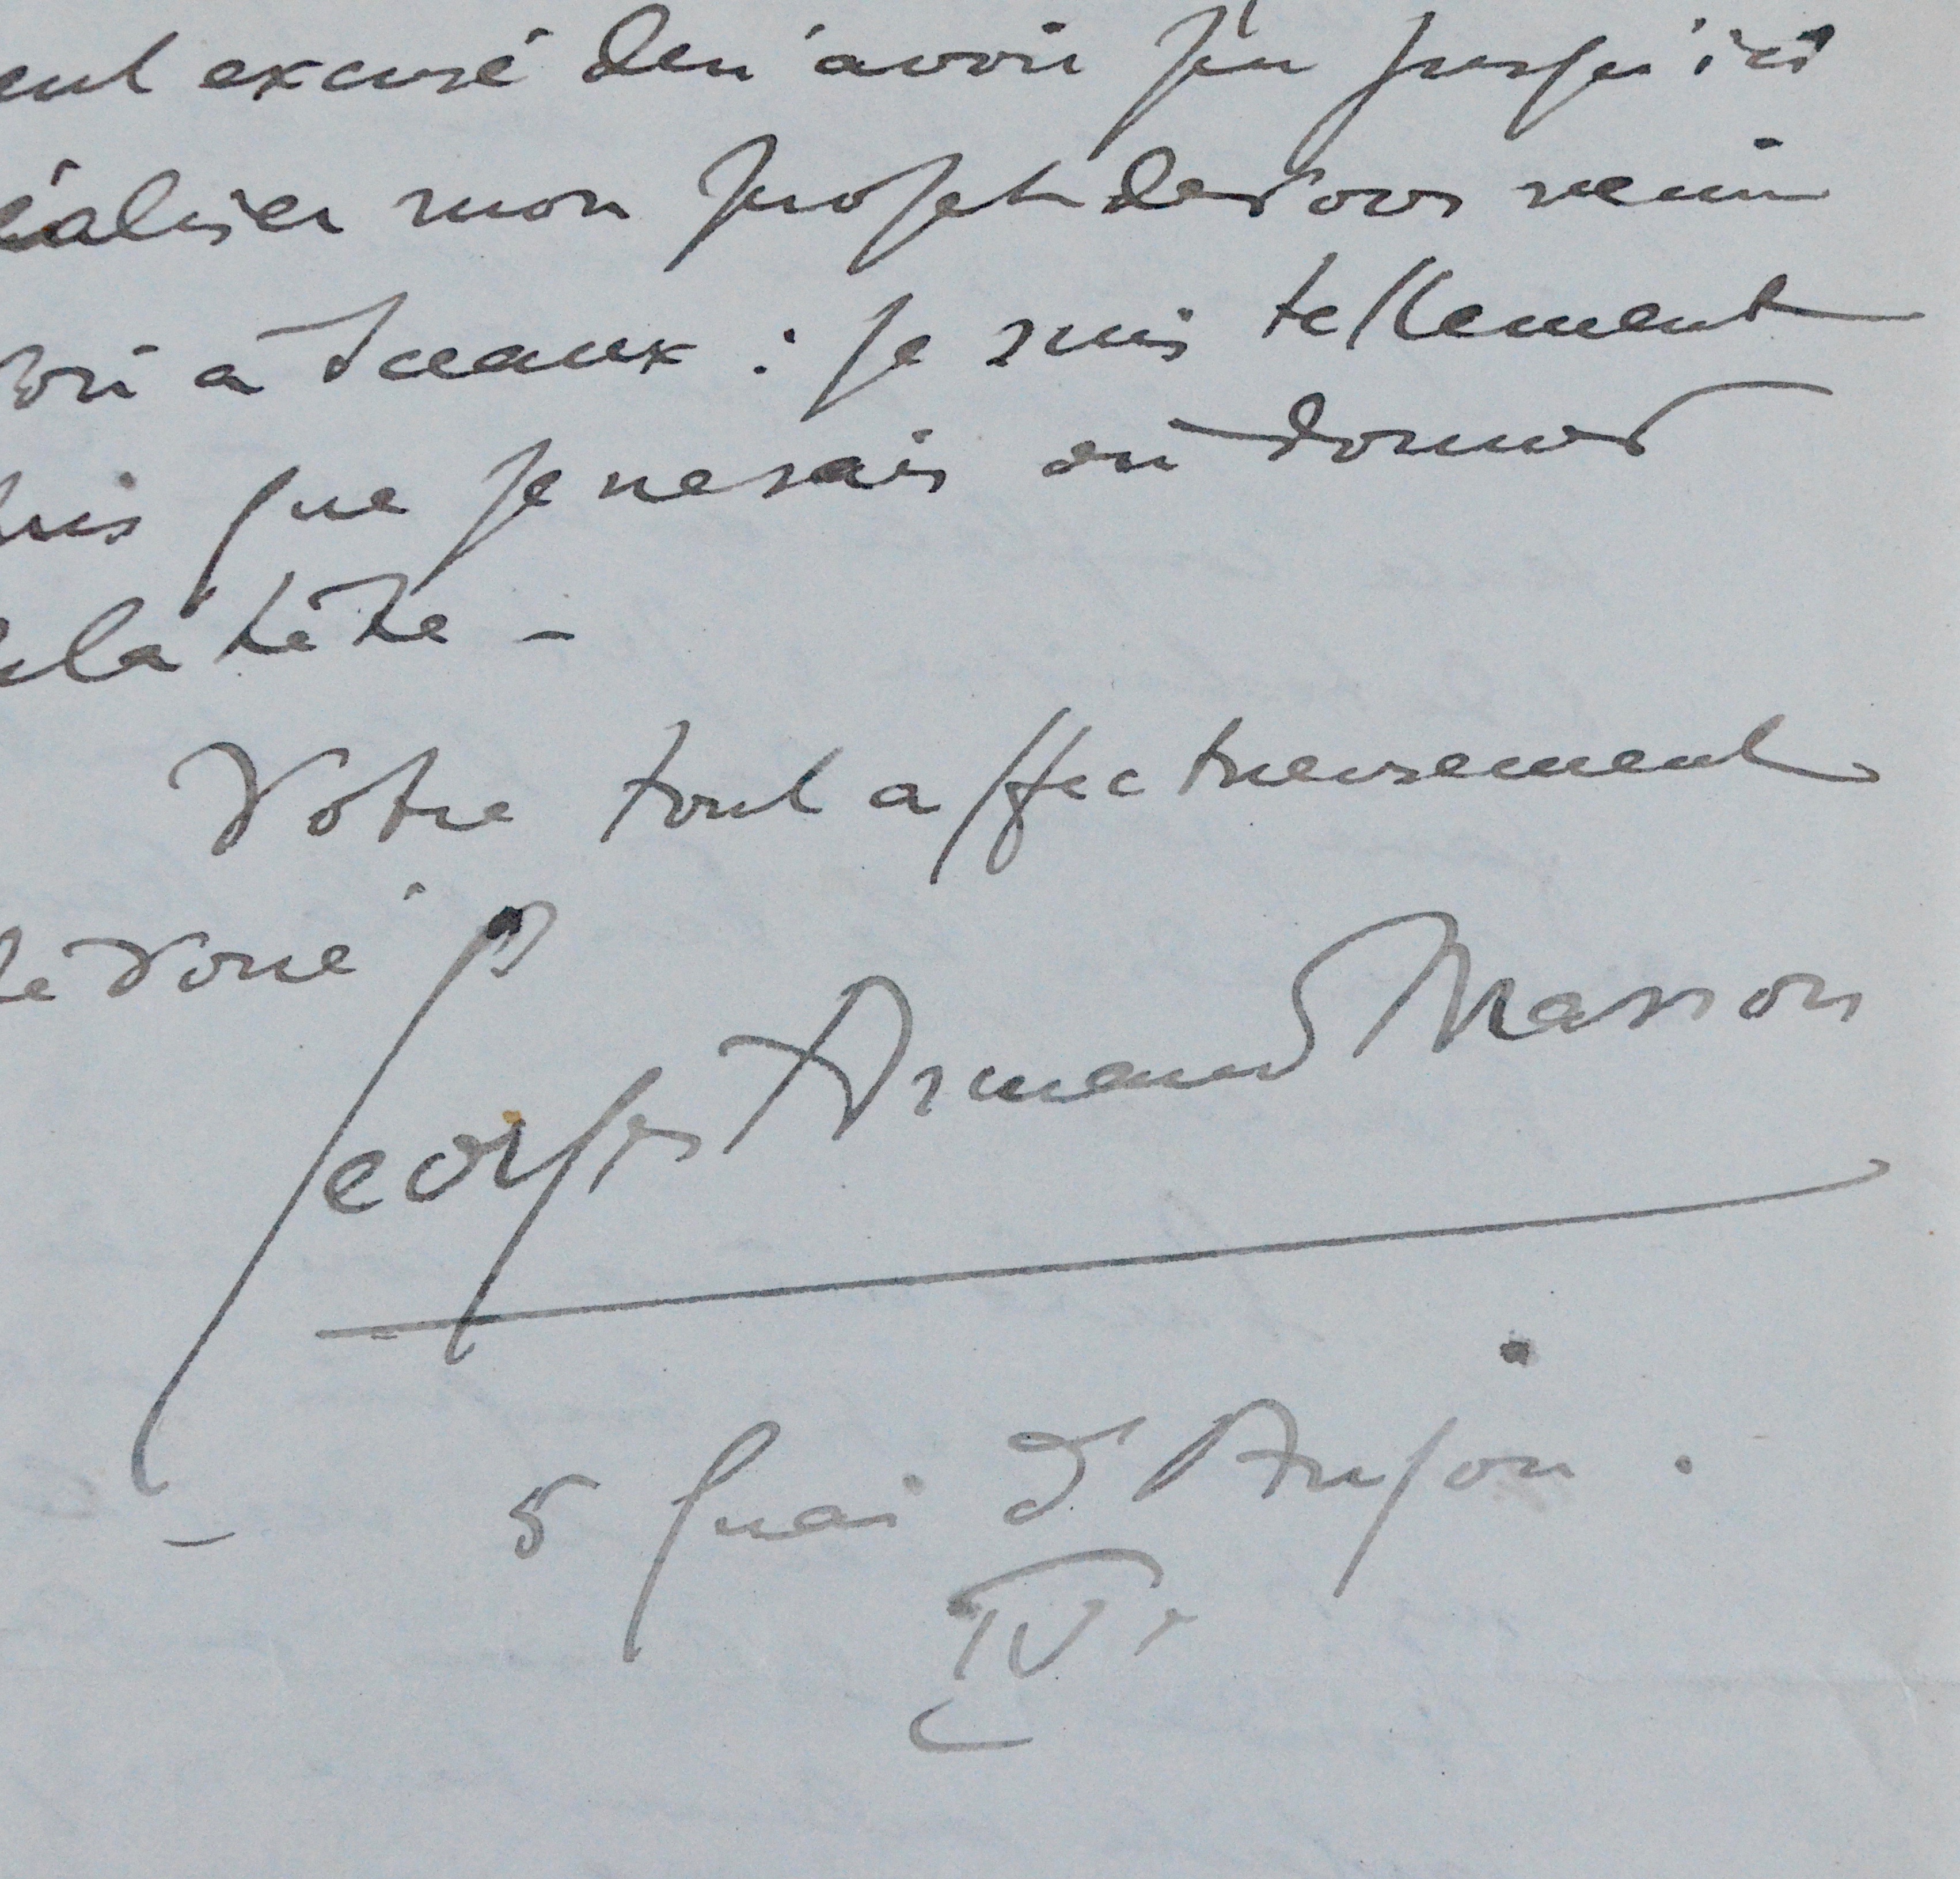 excusé de n'avoir pu jusqu'ici
réaliser mon projet de vous venir
voir à Sceaux : je suis tellement
pris que je ne sais où donner
la tête -
Votre tout affectueusement
dévoué
Georges Armand Masson
5 Quai d'Anjou.
IVe